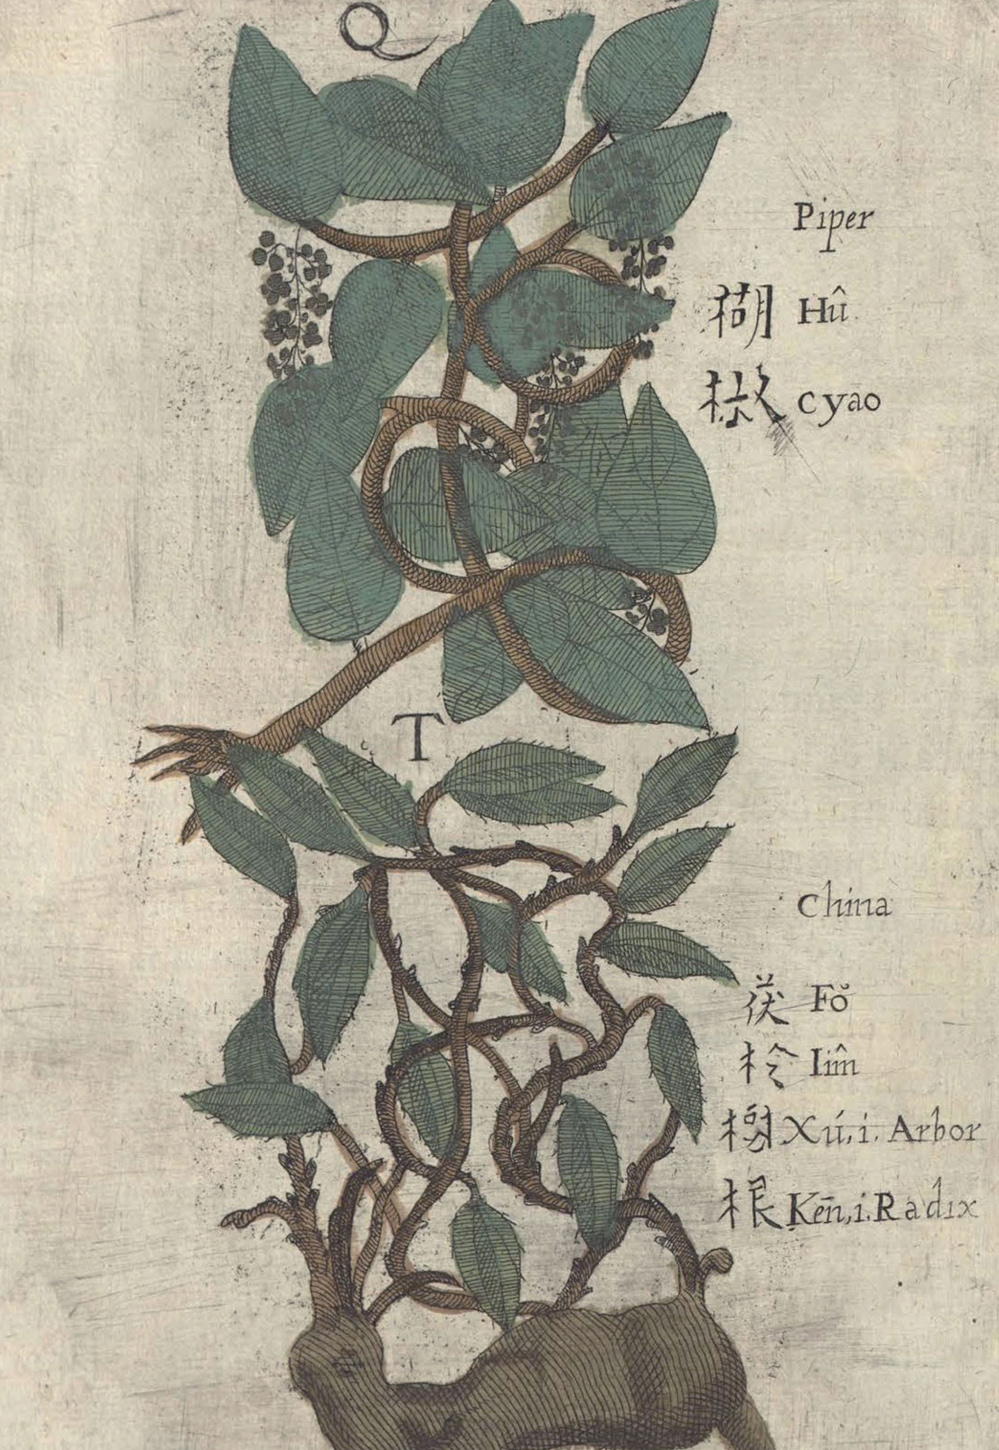 Q
Piper
猢 Hû
椒 cyāo
T
China
茯 Fŏ
柃 lîm
樹 Xú, i. Arbor
根 Kēn, i. Radix